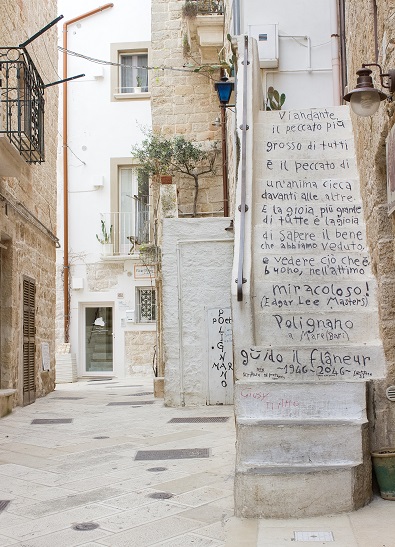 Viandante
il peccato più
grosso di tutti
è il peccato di
un'anima cieca
davanti alle altre
E la gioia più grande
di tutte è la gioia
di sapere il bene
che abbiamo veduto.
e vedere ciò che è
buono, nell'attimo
miracoloso!
(Edgar Lee Masters)
Polignano
a Mare (Bari)
guido il flâneur
~1946~2046~
POLIGNANO
MAR